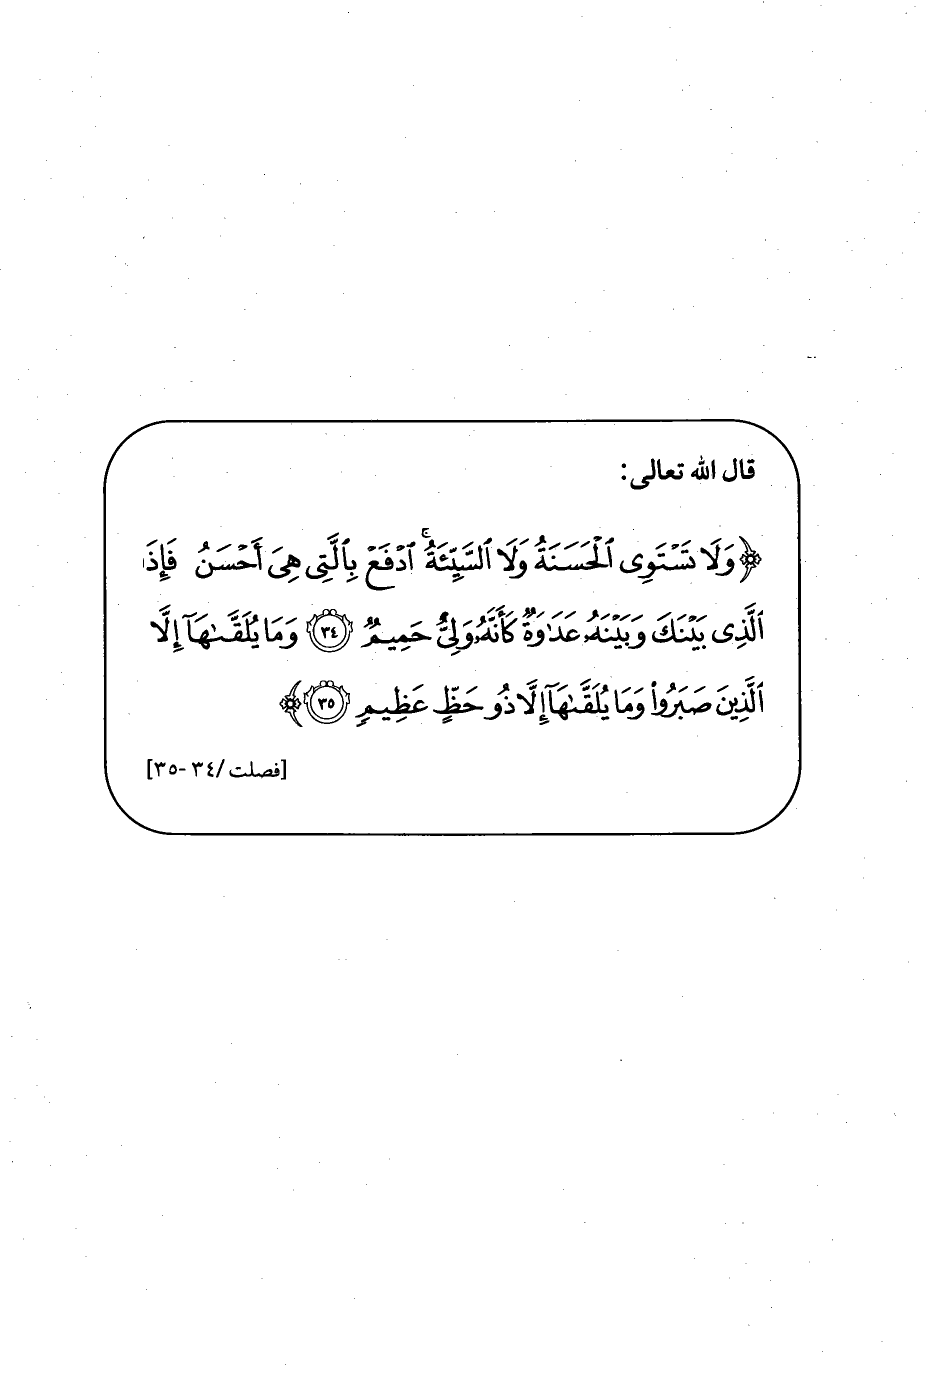 قال الله تعالى:
﴿وَلَا تَسْتَوِى ٱلْحَسَنَةُ وَلَا ٱلسَّيِّئَةُ ۚ ٱدْفَعْ بِٱلَّتِى هِىَ أَحْسَنُ فَإِذَا
ٱلَّذِى بَيْنَكَ وَبَيْنَهُۥ عَدَٰوَةٌ كَأَنَّهُۥ وَلِىٌّ حَمِيمٌ ٣٤ وَمَا يُلَقَّىٰهَآ إِلَّا
ٱلَّذِينَ صَبَرُوا۟ وَمَا يُلَقَّىٰهَآ إِلَّا ذُو حَظٍّ عَظِيمٍ ٣٥﴾
[فصلت/٣٤-٣٥]